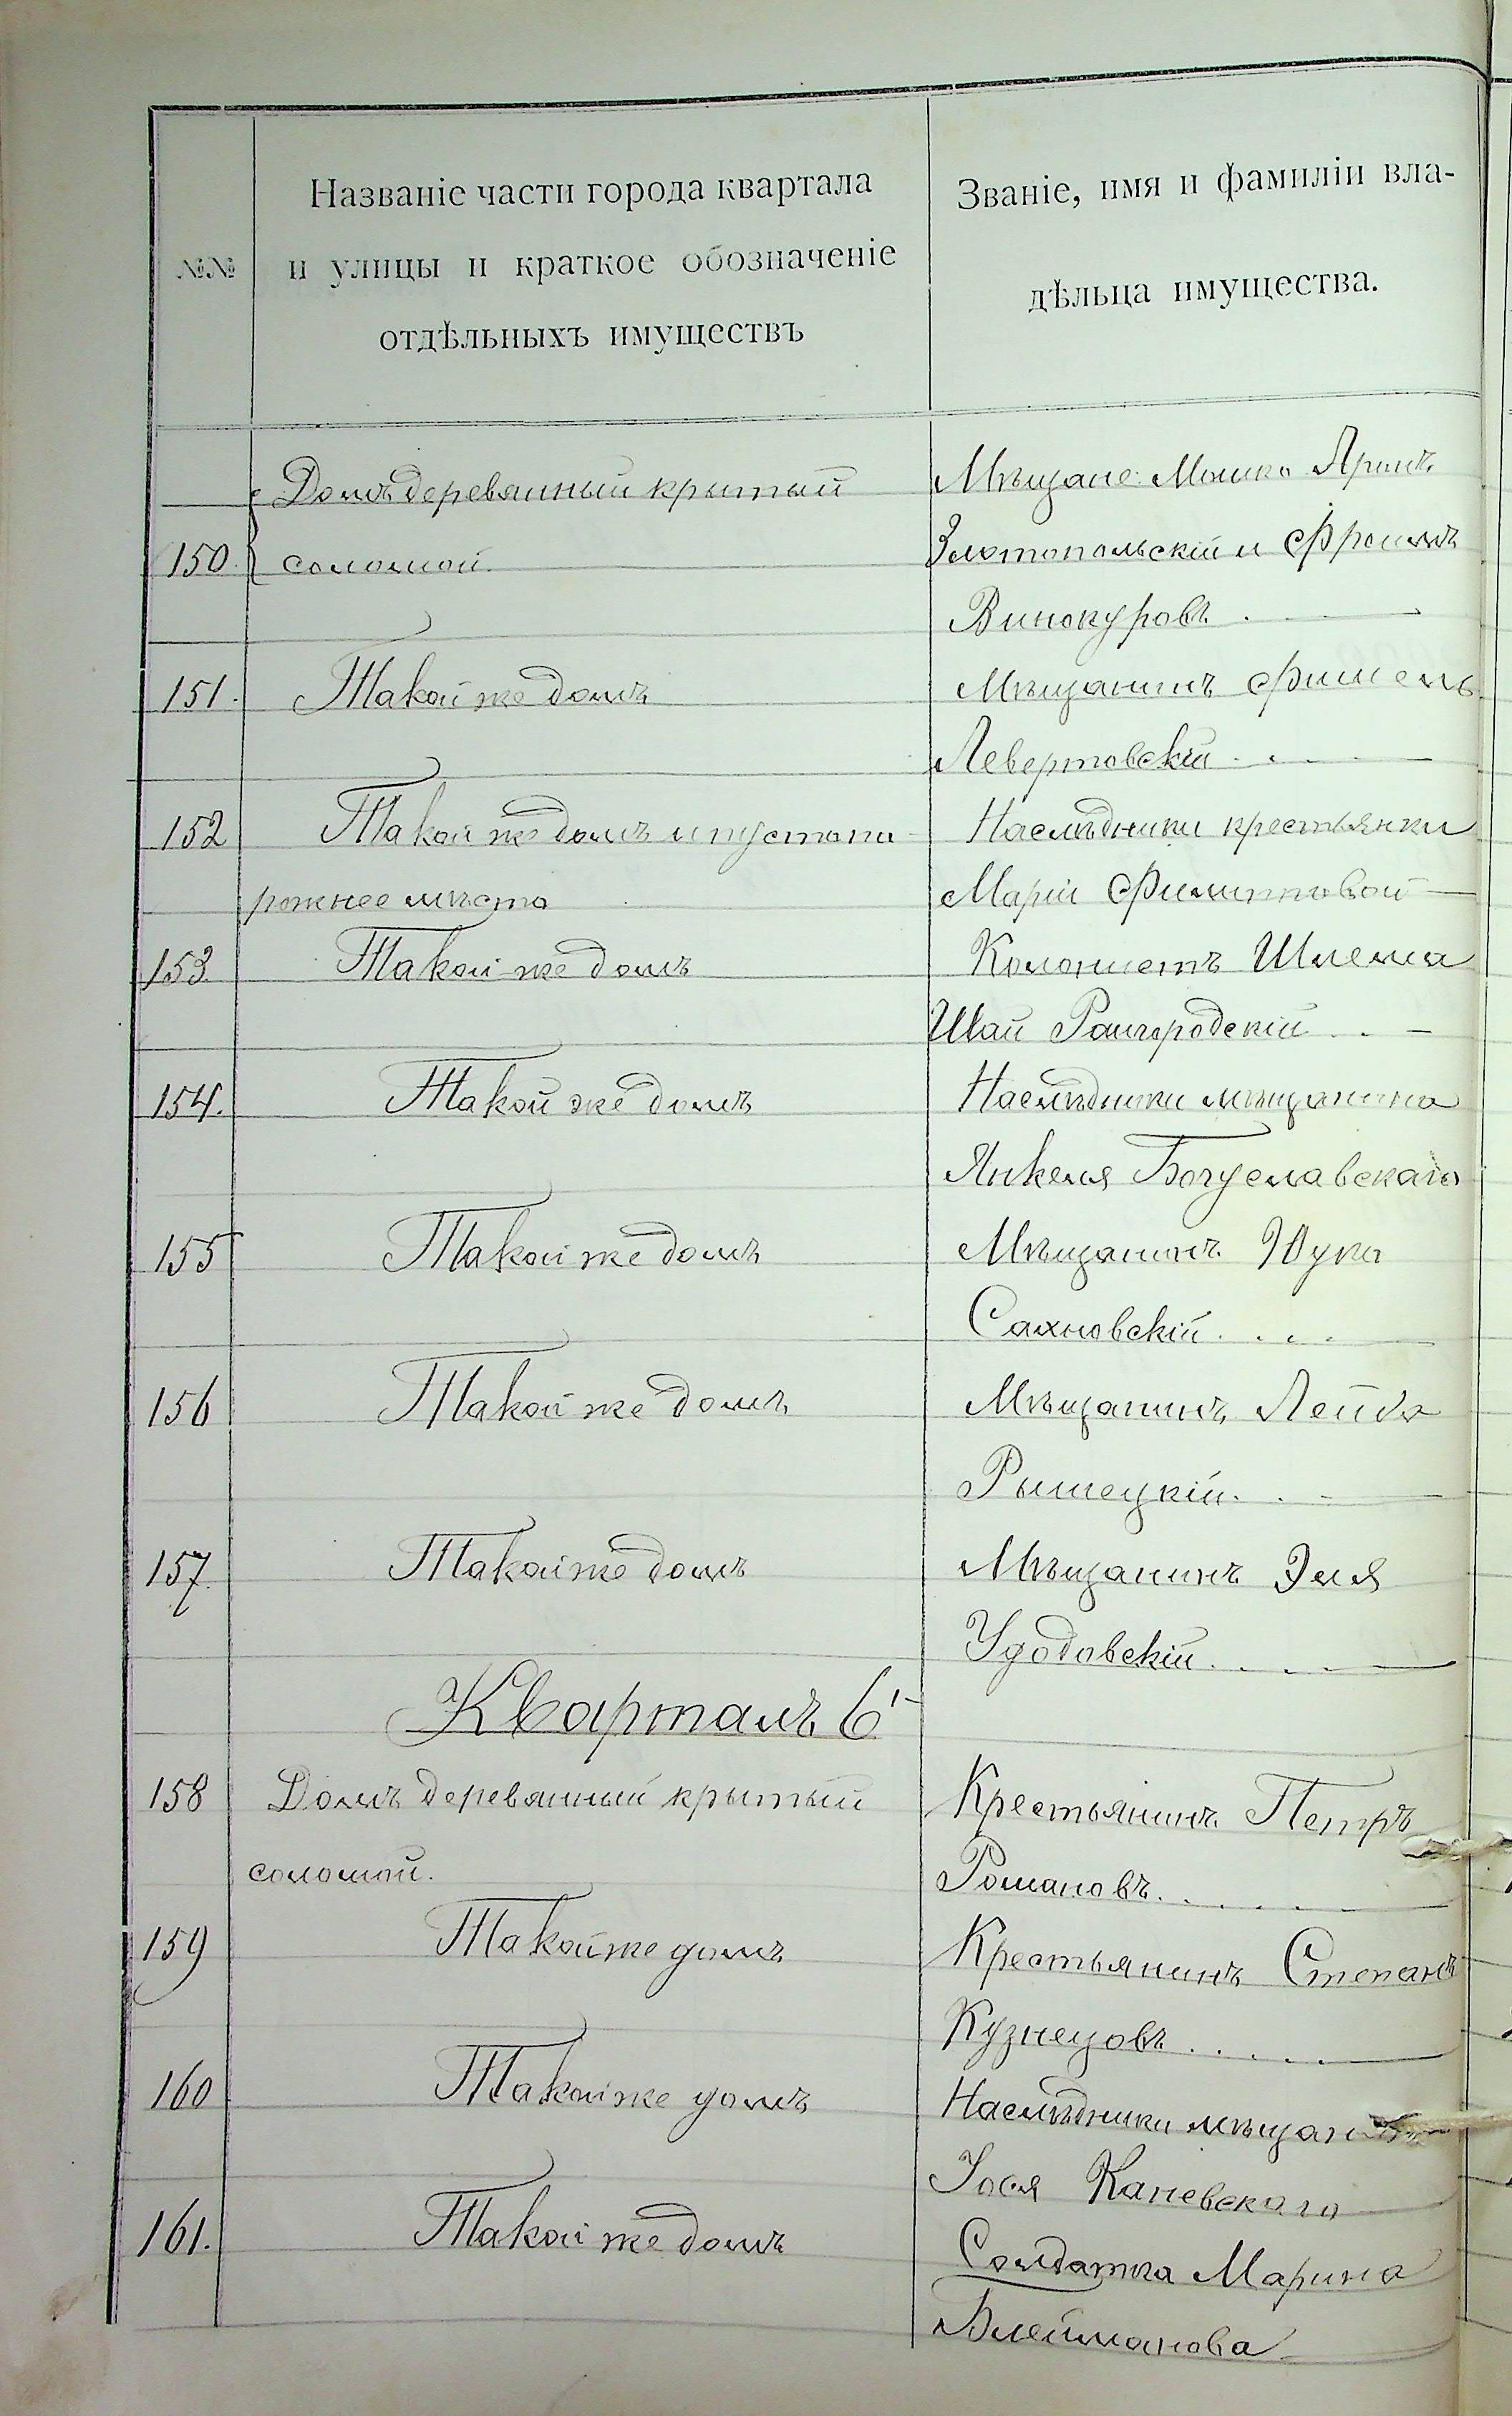 №№
Названіе части города квартала
и улицы и краткое обозначеніе
отдѣльныхъ имуществъ
Званіе, имя и фамиліи вла-
дѣльца имущества.
Домъ деревянный крытый
Мѣщане Мошко Аронъ
150. соломой.
Злотопольскій и Фроимъ
Винокуровъ
151. Такой же домъ
Мѣщанинъ Фишель
Левертовскій
152 Такой же домъ и пустопо
Наслѣдники крестьянки
рожнее мѣсто
Маріи Филипповой
153. Такой же домъ
Колонистъ Шлема
Шай Райгородскій
154. Такой же домъ
Наслѣдники мѣщанина
Янкеля Богуславскаго
155 Такой же домъ
Мѣщанинъ Юука
Сахновскій
156 Такой же домъ
Мѣщанинъ Лейба
Рышецкій
157. Такой же домъ
Мѣщанинъ Эля
Удодовскій
Кварталъ 6й
158 Домъ деревянный крытый
Крестьянинъ Петръ
соломой.
Романовъ
159 Такой же домъ
Крестьянинъ Степанъ
Кузнецовъ
160 Такой же домъ
Наслѣдники
Іося Каневскаго
161. Такой же домъ
Солдатка Марина
Блейманова